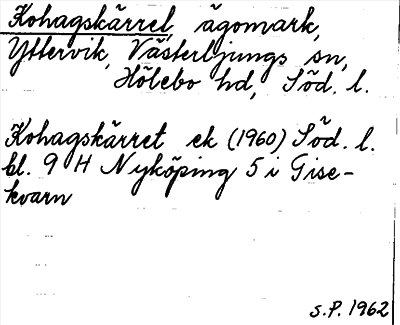 Kohagskärret, ägomark,
Yttervik, Västerljungs sn,
Hölebo hd, Söd. l.
Kohagskärret ek (1960) Söd. l.
bl. 9 H Nyköping 5 i Gise-
kvarn
S.P. 1962